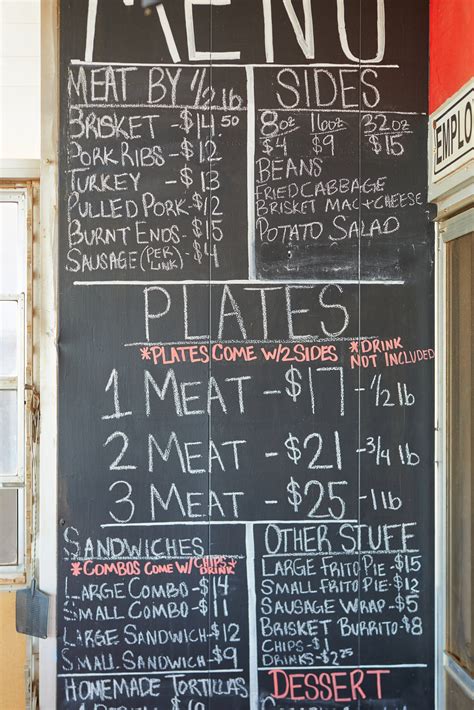 MENU
MEAT BY 1/2 lb
BRISKET -$14.50
PORK RIBS -$12
TURKEY -$13
PULLED PORK -$12
BURNT ENDS -$15
SAUSAGE (PER LINK) -$4
SIDES
8oz 16oz 32oz
$4 $9 $15
BEANS
FRIED CABBAGE
BRISKET MAC+CHEESE
POTATO SALAD
EMPLO
PLATES
*PLATES COME W/2 SIDES *DRINK NOT INCLUDED
1 MEAT -$17 -1/2 lb
2 MEAT -$21 -3/4 lb
3 MEAT -$25 -1lb
SANDWICHES
*COMBOS COME W/CHIPS DRINK
LARGE COMBO -$14
SMALL COMBO -$11
LARGE SANDWICH -$12
SMALL SANDWICH -$9
HOMEMADE TORTILLAS
OTHER STUFF
LARGE FRITO PIE -$15
SMALL FRITO PIE -$11
SAUSAGE WRAP -$5
BRISKET BURRITO -$8
CHIPS -$1
DRINKS -$2.50
DESSERT